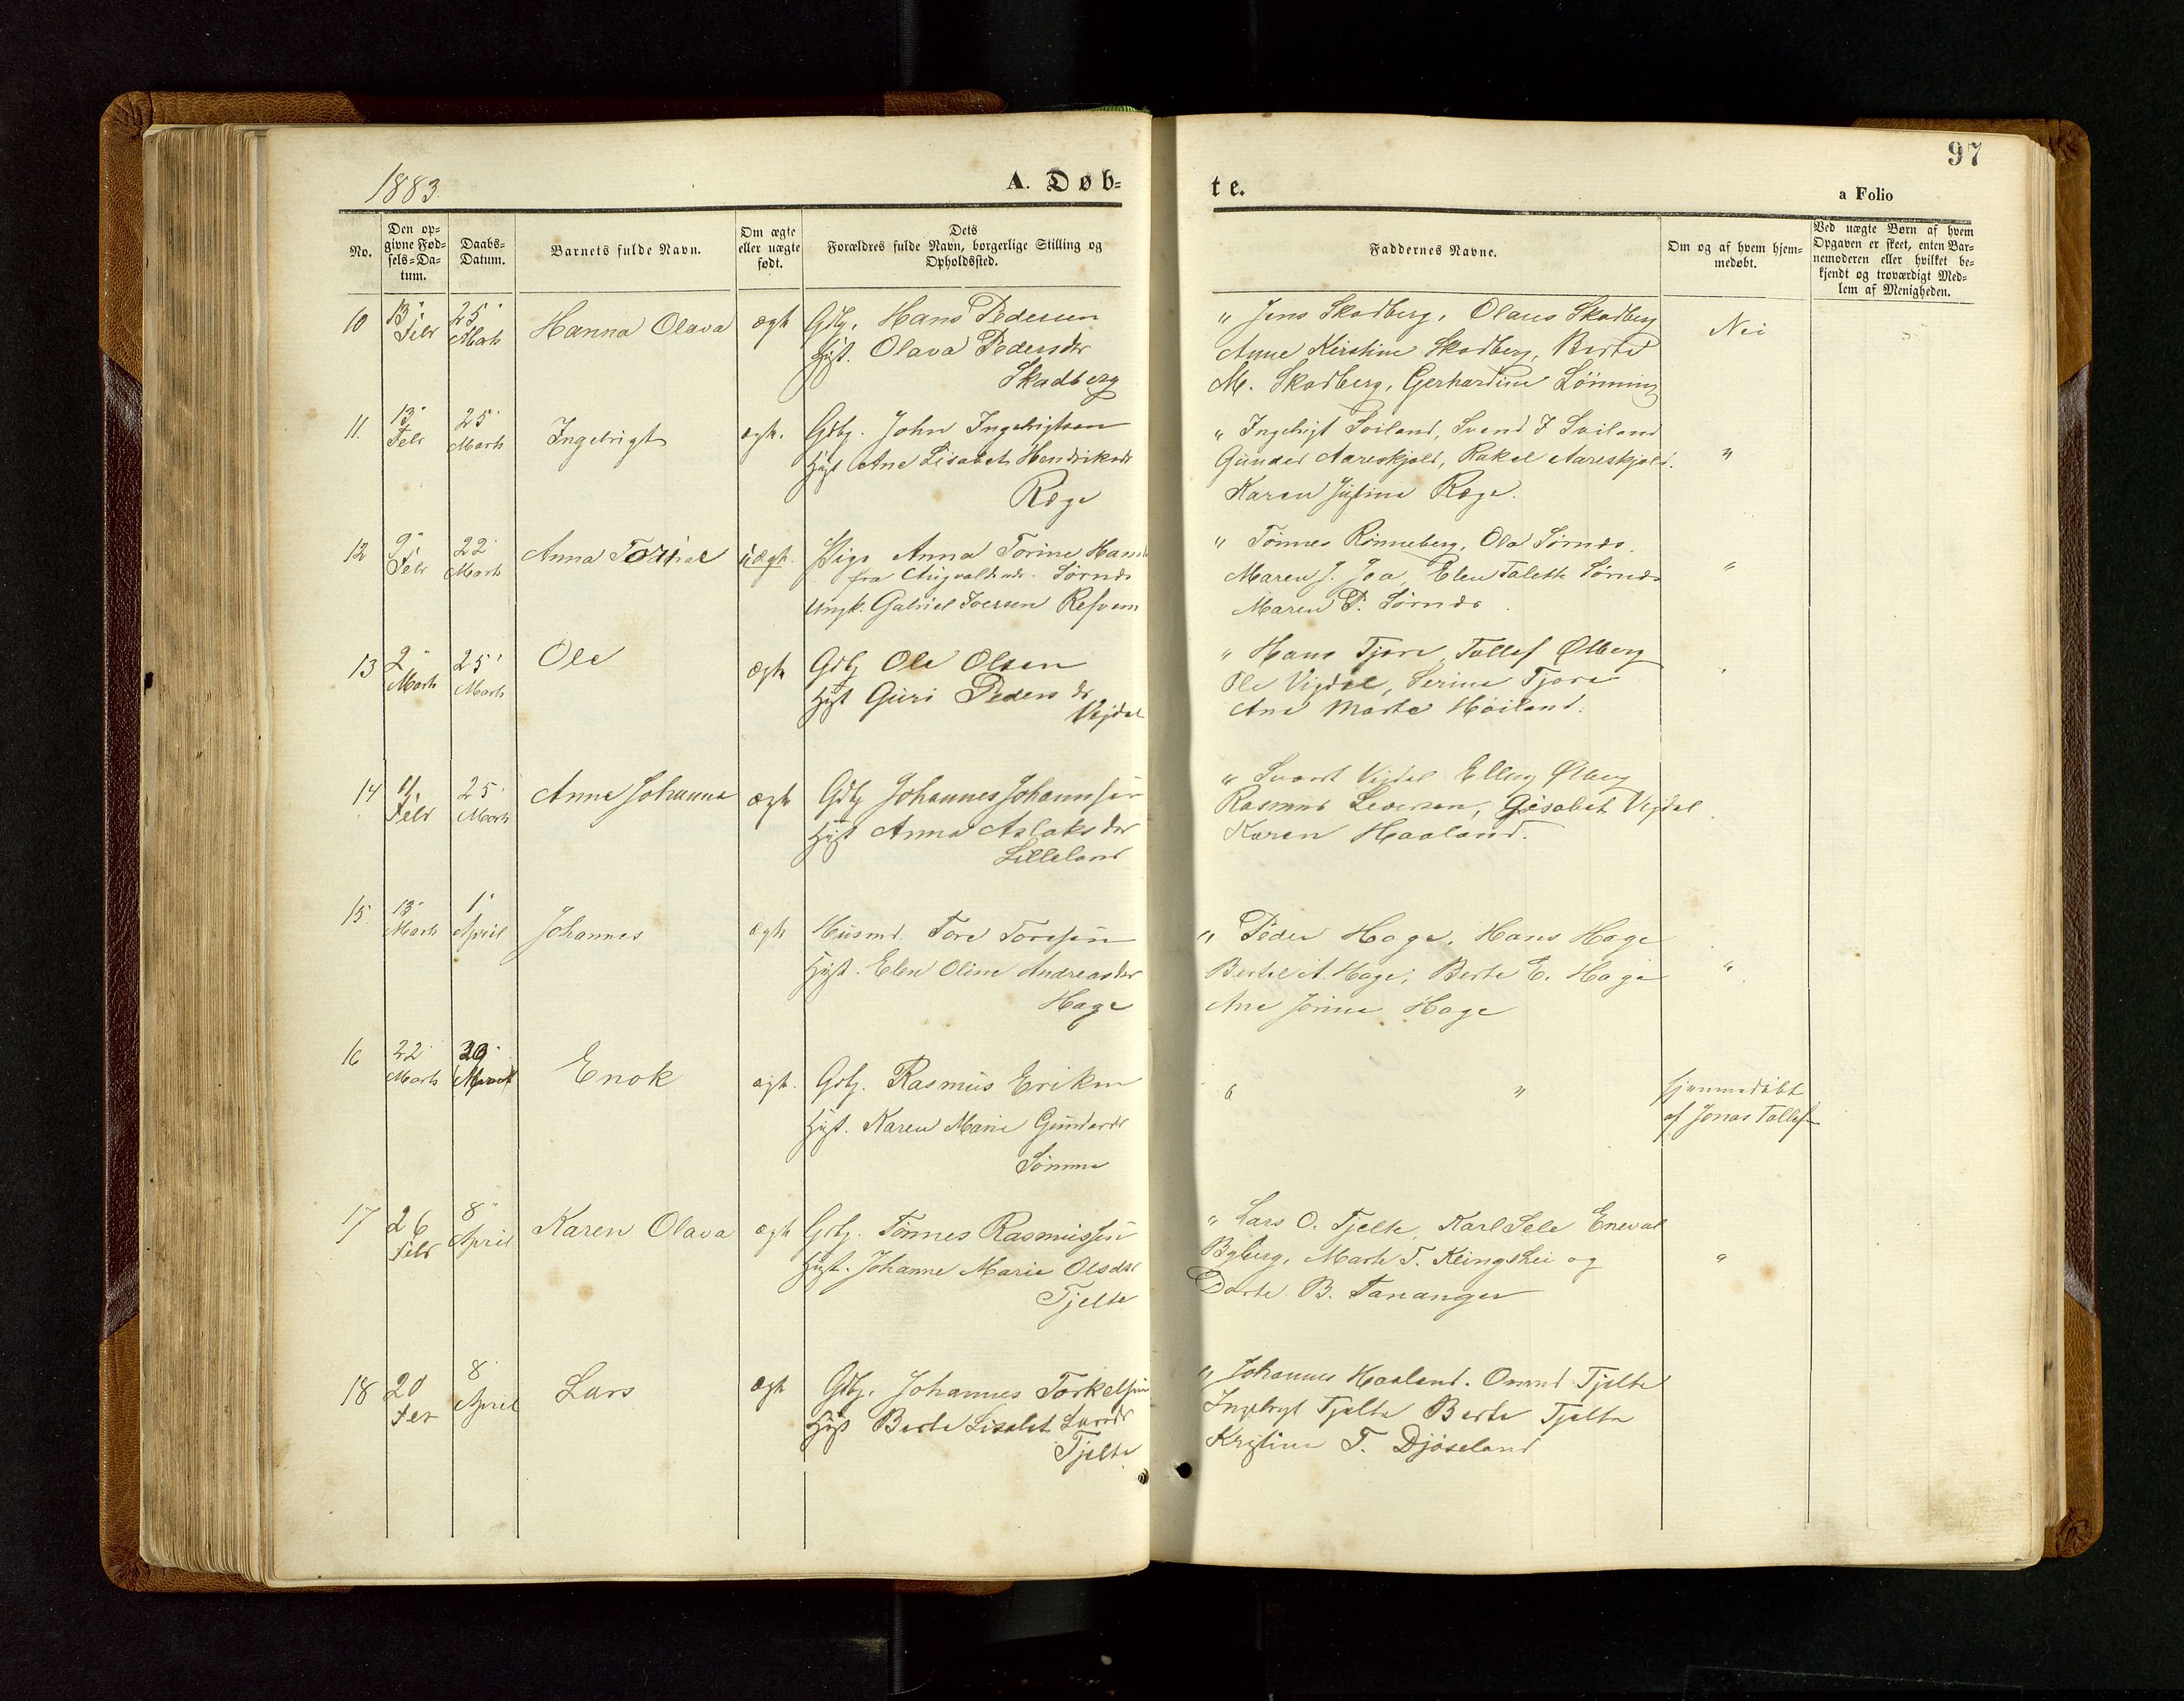 1883.
A. Døb-
te.
97
a Folio
No.
Den op-
givne Fød-
sels-Da-
tum.
Daabs-
Datum.
Barnets fulde Navn.
Om ægte
eller uægte
født.
Dets
Forældres fulde Navn, borgerlige Stilling og
Opholdssted.
Faddernes Navne.
Om og af hvem hjem-
medøbt.
Ved uægte Børn af hvem
Opgaven er skeet, enten Bar-
nemoderen eller hvilket be-
kjendt og troværdigt Med-
lem af Menigheden.
10
13
Febr
25
Marts
Hanna Olava
ægte
Gdbg. Hans Pedersen
Hust. Olava Pedersdr
Skadberg
" Jens Skadberg, Olaus Skadberg
Anne Kirstine Skadberg, Berte
M. Skadberg, Gerhardine Lönning
Nei
11.
13
Febr
25
Marts
Ingebrigt
ægte.
Gdbg. John Ingebrigtsen
Hust Ane Lisabet Hendriksdr
Ræge
" Ingebrigt Soiland, Svend I Soiland
Gunder Aareskjold, Rakel Aareskjold.
Karen Justine Ræge.
"
12
9
Febr
22
Marts
Anna Torine
uægte.
Pige Anna Torine Hans
fra Augvaldsnes. Sörnes
Ungk. Gabriel Iversen Refsnes
" Tönnes Rönneberg, Ola Sörnes.
Maren J. Joa, Elen Talette Sörnes
Maren P. Sörnes.
"
13
2
Marts
25
Marts
Ole
ægte
Gdbg Ole Olsen
Hust Guri Pedersdr
Vigdel
" Hans Tjora, Tollef Ølberg
Ole Vigdel, Serine Tjora
Ane Marte Höiland.
"
14
11
Febr
25
Marts
Anne Johanna
ægte
Gdbg Johannes Johannessen
Hust Anna Aslaksdr
Lilleland
" Sivert Vigdel Elling Ølberg
Rasmus Seversen, Lisabet Vigdel
Karen Haaland.
15
13
Marts
1
April
Johannes
ægte
Husmd. Tore Toresen
Hust. Elen Oline Andreasdr
Hage
" Peder Hage, Hans Hage
Bertel A. Hage, Berte E. Hage
Ane Jorine Hage
"
16
22
Marts
Enok
ægte.
Gdbg. Rasmus Eriksen
Hust. Karen Marie Gundersdr
Sömme
"
hjemmedöbt
af Jonas Tollefsen
17
26
Febr
8
April
Karen Olava
ægte
Gdbg. Tönnes Rasmussen
Hust. Johanne Marie Olsdr
Tjelte
" Lars O. Tjelte, Karl Sele Enevald
Byberg, Marte T. Klingshei og
Dorte B. Tananger
"
18
20
Febr
8
April
Lars
ægte
Gdbg. Johannes Torkelsen
Hust Berte Lisabet Larsdr
Tjelte
" Johannes Haaland. Omund Tjelte
Ingebrigt Tjelte Berte Tjelte
Kristine T. Djöseland